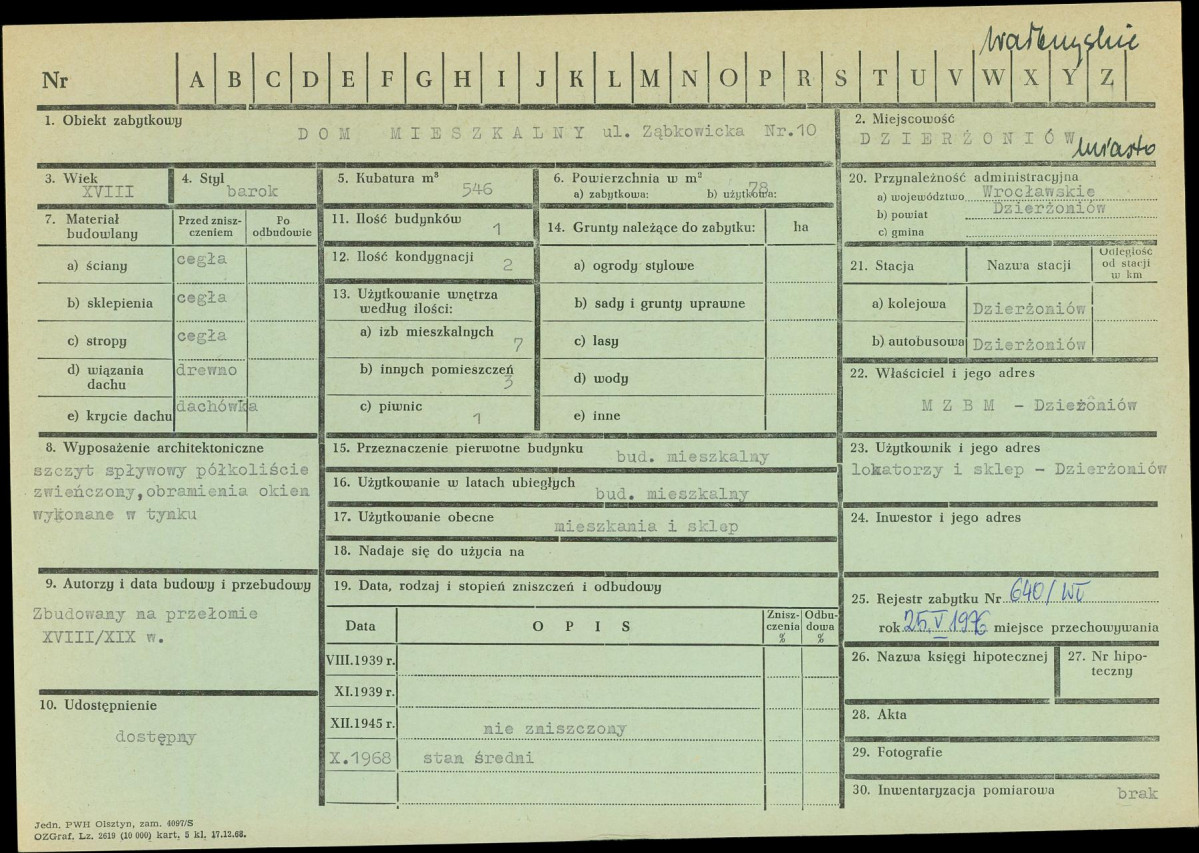 wałbrzyskie
Nr A B C D E F G H I J K L M N O P R S T U V W X Y Z
1. Obiekt zabytkowy
DOM MIESZKALNY ul. Ząbkowicka Nr.10
2. Miejscowość
DZIERŻONIÓW miasto
3. Wiek
XVIII
4. Styl
barok
5. Kubatura m³
546
6. Powierzchnia w m²
78
a) zabytkowa: b) użytkowa:
20. Przynależność administracyjna
a) województwo Wrocławskie
b) powiat Dzierżoniów
c) gmina
7. Materiał budowlany
Przed zniszczeniem
Po odbudowie
a) ściany cegła
b) sklepienia cegła
c) stropy cegła
d) wiązania dachu drewno
e) krycie dachu dachówka
11. Ilość budynków
1
12. Ilość kondygnacji
2
13. Użytkowanie wnętrza
według ilości:
a) izb mieszkalnych
7
b) innych pomieszczeń
3
c) piwnic
1
14. Grunty należące do zabytku: ha
a) ogrody stylowe
b) sady i grunty uprawne
c) lasy
d) wody
e) inne
21. Stacja Nazwa stacji
Odległość
od stacji
w km
a) kolejowa Dzierżoniów
b) autobusowa Dzierżoniów
22. Właściciel i jego adres
M Z B M - Dzieżoniów
8. Wyposażenie architektoniczne
szczyt spływowy półkoliście
zwieńczony,obramienia okien
wykonane w tynku
15. Przeznaczenie pierwotne budynku
bud. mieszkalny
16. Użytkowanie w latach ubiegłych
bud. mieszkalny
17. Użytkowanie obecne
mieszkania i sklep
18. Nadaje się do użycia na
23. Użytkownik i jego adres
lokatorzy i sklep - Dzierżoniów
24. Inwestor i jego adres
9. Autorzy i data budowy i przebudowy
Zbudowany na przełomie
XVIII/XIX w.
10. Udostępnienie
dostępny
19. Data, rodzaj i stopień zniszczeń i odbudowy
Data OPIS
Zniszczenia %
Odbudowa %
VIII.1939 r.
XI.1939 r.
XII.1945 r. nie zniszczony
X.1968 stan średni
25. Rejestr zabytku Nr 640/WŁ
rok 25.V 1976 miejsce przechowywania
26. Nazwa księgi hipotecznej
27. Nr hipoteczny
28. Akta
29. Fotografie
30. Inwentaryzacja pomiarowa
brak
Jedn. PWH Olsztyn, zam. 4097/S
OZGraf. Lz. 2619 (10 000) kart. 5 kl. 17.12.68.